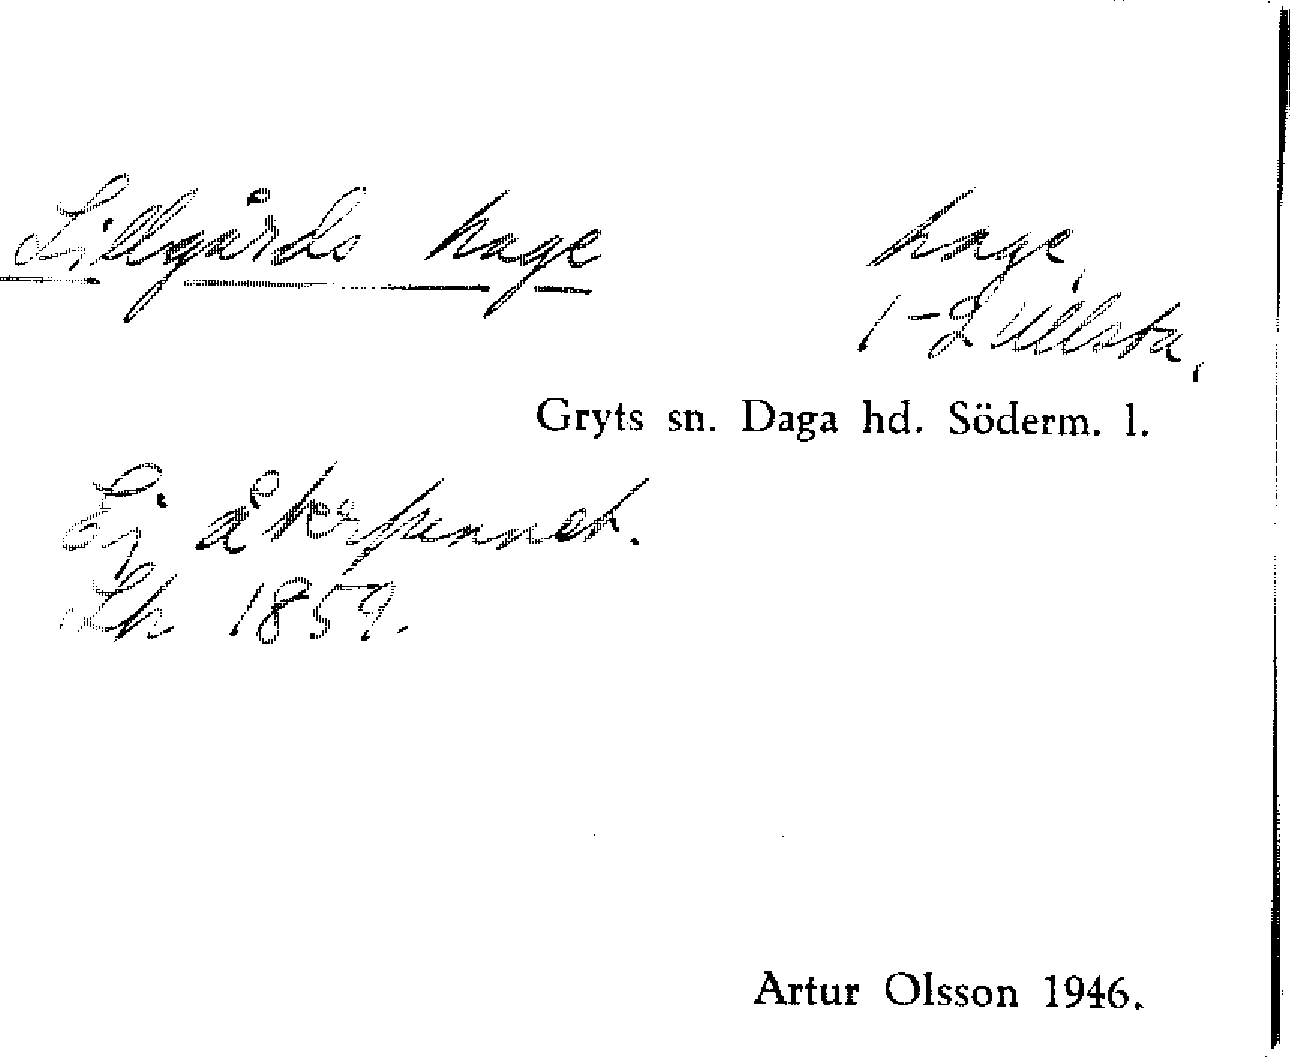 Lillgårds hage hage,
1-2 Ullsta,
Gryts sn. Daga hd. Söderm. l.
Ej återfunnet.
Lh 1859.
Artur Olsson 1946.